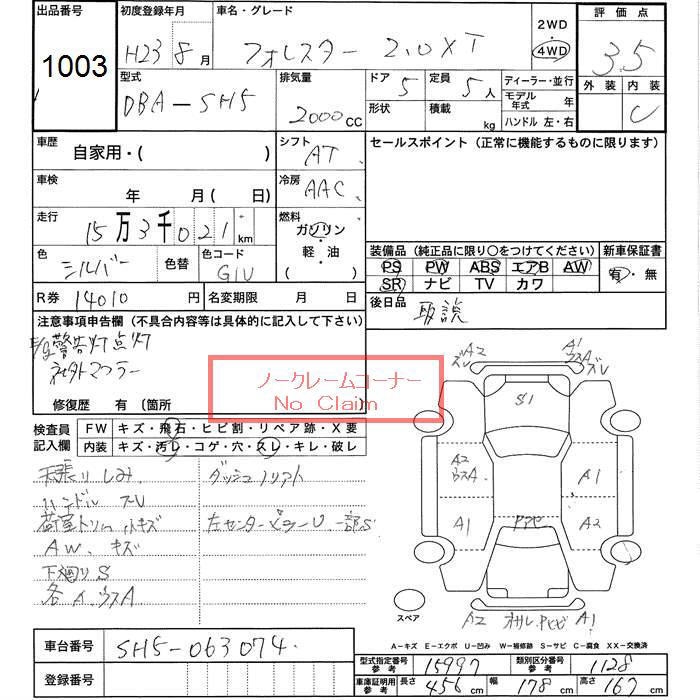 出品番号 初度登録年月 車名・グレード 2WD 評価点
1003 H23 8月 フォレスター 2.0XT 4WD 3.5
型式 排気量 ドア 定員 ディーラー・並行 外装 内装
DBA-SH5 2000cc 5 5人 モデル年式 年 C
形状 積載 kg ハンドル 左・右
車歴 自家用・( ) シフト AT セールスポイント (正常に機能するものに限ります)
車検 年 月( 日) 冷房 AAC
走行 15万3千021km 燃料 ガソリン・軽・油 ( )
色 シルバー 色替 色コード G1U
装備品 (純正品に限り○をつけてください) 新車保証書
PS PW ABS エアB AW 有・無
SR ナビ TV カワ
R券 14010円 名変期限 月 日 後日品 取説
注意事項申告欄 (不具合内容等は具体的に記入して下さい)
E/g警告灯点灯
社外マフラー
ノークレームコーナー
No Claim
修復歴 有 〔箇所 〕
検査員記入欄 FW キズ・飛石・ヒビ割・リペア跡・X要
内装 キズ・汚レ・コゲ・穴・スレ・キレ・破レ
天張りしみ ダッシュノリアト
ハンドル スレ
荷室トリム小キズ 左センターピラーU 一部S
AW、キズ
下廻りS
各A、ウスA
A2 A1
ズレ ウスA ズレ
S1
A2 ウスA A1
A1 A2
スペア A2 A1
A-キズ E-エクボ U-凹み W-補修跡 S-サビ C-腐食 XX-交換済
車台番号 SH5-063074
登録番号
型式指定番号 参考 15997 類別区分番号 参考 1128
車庫証明用 参考 長さ 456cm 幅 178cm 高さ 167cm